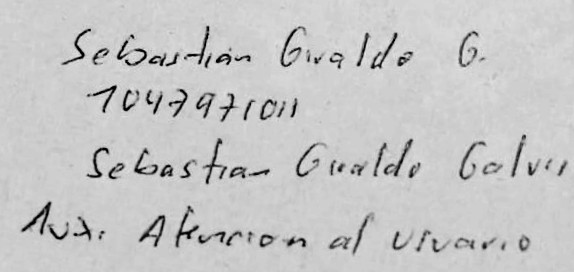 Sebastián Giraldo G.
1047971011
Sebastian Giraldo Galvis
Aux. Atencion al usuario